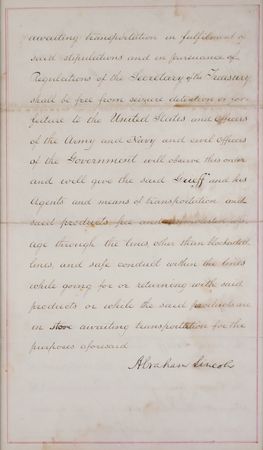 awaiting transportation in fulfilment of
said stipulations and in pursuance of
Regulations of the Secretary of the Treasury
shall be free from seizure detention or for
feiture to the United States and officers
of the Army and Navy and civil officers
of the Government will observe this order
and will give the said and his
Agents and means of transportation and
said products free and pass
age through the lines, other than blockaded
lines, and safe conduct within the lines
while going for or returning with said
products or while the said products are
in store awaiting transportation for the
purposes aforesaid
Abraham Lincoln